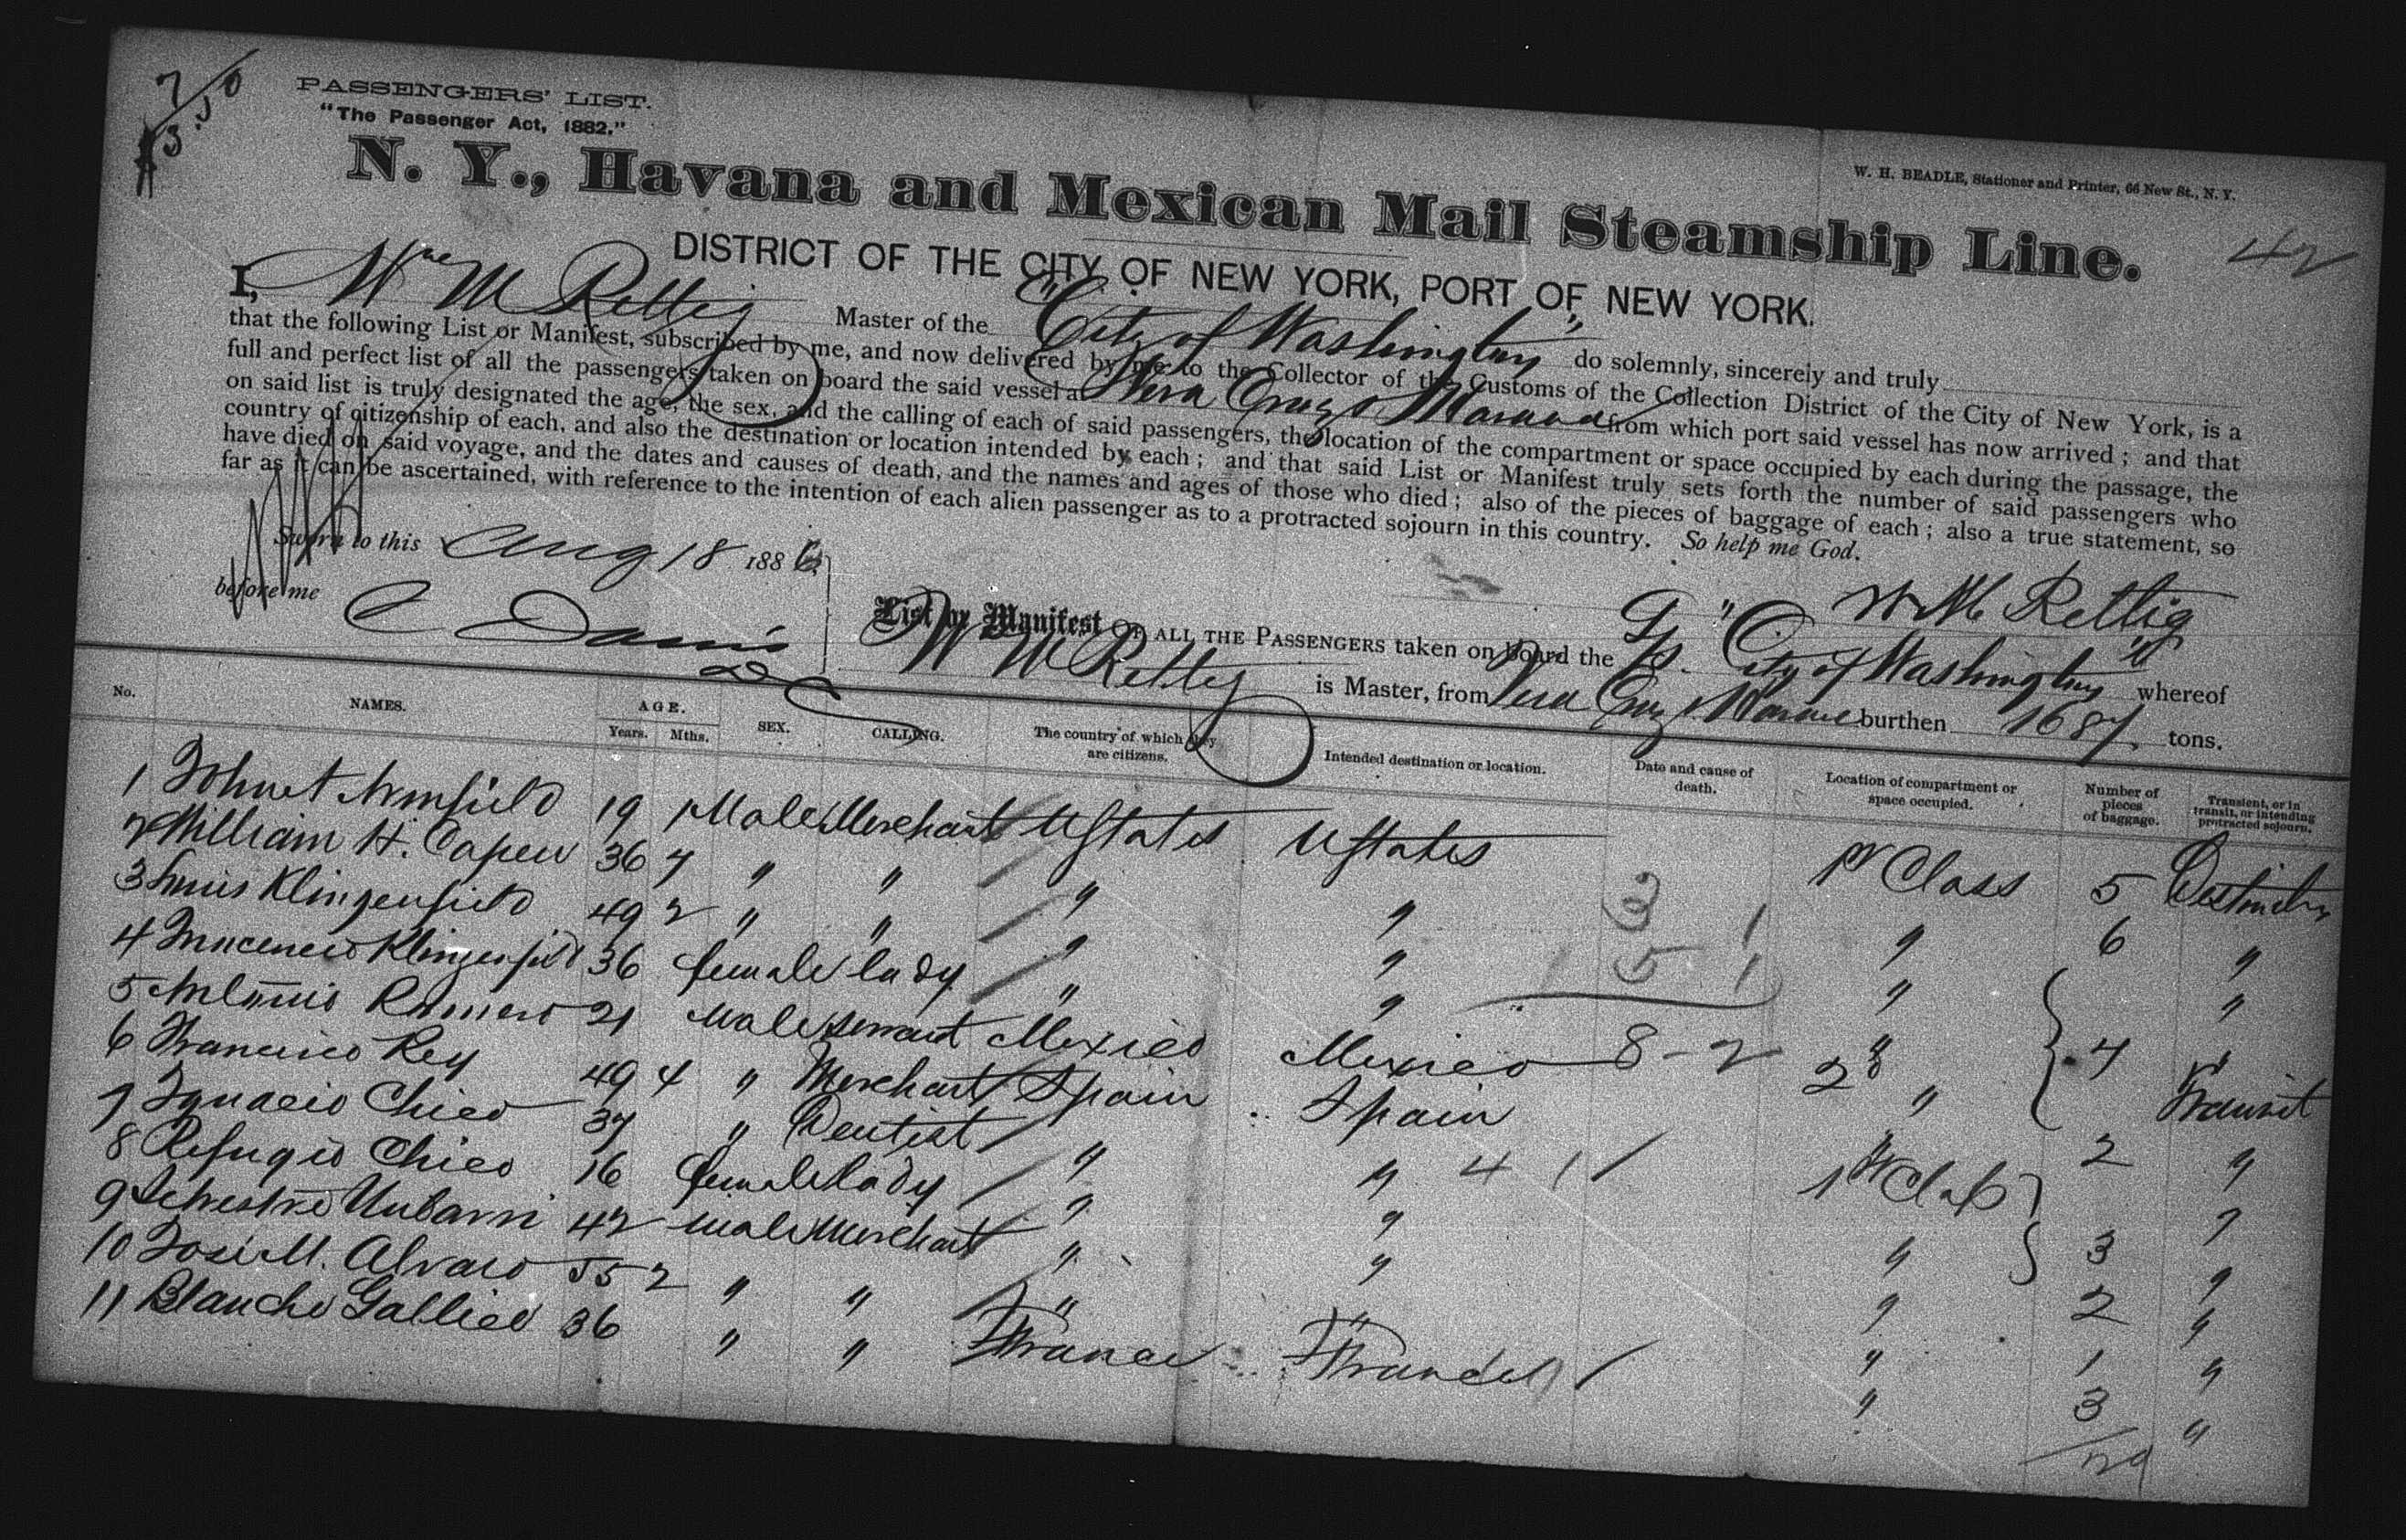 PASSENGERS' LIST.
"The Passenger Act, 1882."
W. H. BEADLE, Stationer and Printer, 66 New St., N. Y.
N. Y., Havana and Mexican Mail Steamship Line.
42
DISTRICT OF THE CITY OF NEW YORK, PORT OF NEW YORK.
I, Wm M Rettig Master of the "City of Washington" do solemnly, sincerely and truly
that the following List or Manifest, subscribed by me, and now delivered by me to the Collector of the Customs of the Collection District of the City of New York, is a
full and perfect list of all the passengers taken on board the said vessel at Vera Cruz & Havana from which port said vessel has now arrived; and that
on said list is truly designated the age, the sex, and the calling of each of said passengers, the location of the compartment or space occupied by each during the passage, the
country of citizenship of each, and also the destination or location intended by each; and that said List or Manifest truly sets forth the number of said passengers who
have died on said voyage, and the dates and causes of death, and the names and ages of those who died; also of the pieces of baggage of each; also a true statement, so
far as it can be ascertained, with reference to the intention of each alien passenger as to a protracted sojourn in this country. So help me God.
Sworn to this Aug 18 1886
before me C Davis
W M Rettig
List or Manifest OF ALL THE PASSENGERS taken on board the "City of Washington" whereof
W M Rettig is Master, from Vera Cruz & Havana burthen 1687 tons.
No. NAMES. AGE. Years. Mths. SEX. CALLING. The country of which they are citizens. Intended destination or location. Date and cause of death. Location of compartment or space occupied. Number of pieces of baggage. Transient, or in transit, or intending protracted sojourn.
1 Armfield 19 1 Male Merchant U States U States 1st Class 5
2 William H. Capen 36 7 " " " " " 6 "
3 Louis Klingenfield 49 2 " " " " " "
4 Klingenfield 36 female lady " " " 4 "
5 Antonio Romero 21 Male servant Mexico Mexico 8-2 2d " Transit
6 Francisco Rey 49 4 " Merchant Spain Spain " 2 "
7 Ignacio Chico 37 " Dentist " " 1st Class "
8 Refugio Chico 16 female lady " " " 3 "
9 42 male Merchant " " " 2 "
10 Jose M. Alvaro 55 2 " " " " " 1 "
11 Blanche 36 " " France France " 3 "